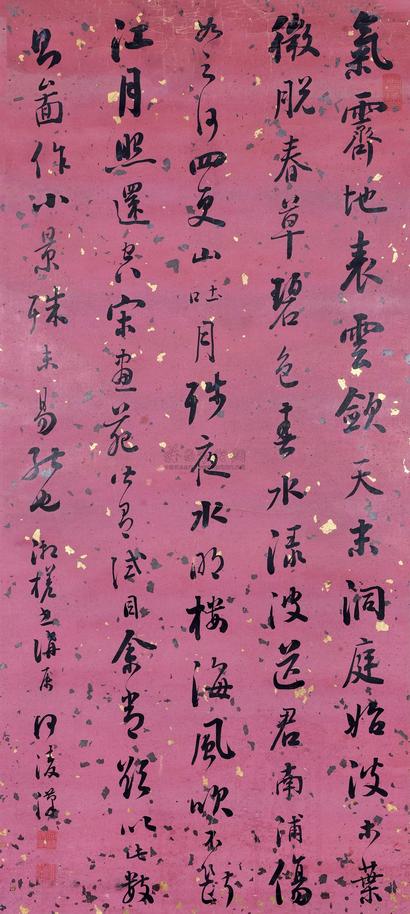 氣霽地表雲斂天末洞庭始波木葉
微脫春草碧色春水漾波送君南浦傷
如之何四更山吐月殘夜水明樓海風吹不斷
江月照還空宋畫苑皆有試目余嘗欲以此數
則圖作小景殊未易能也
湘槎 何凌漢